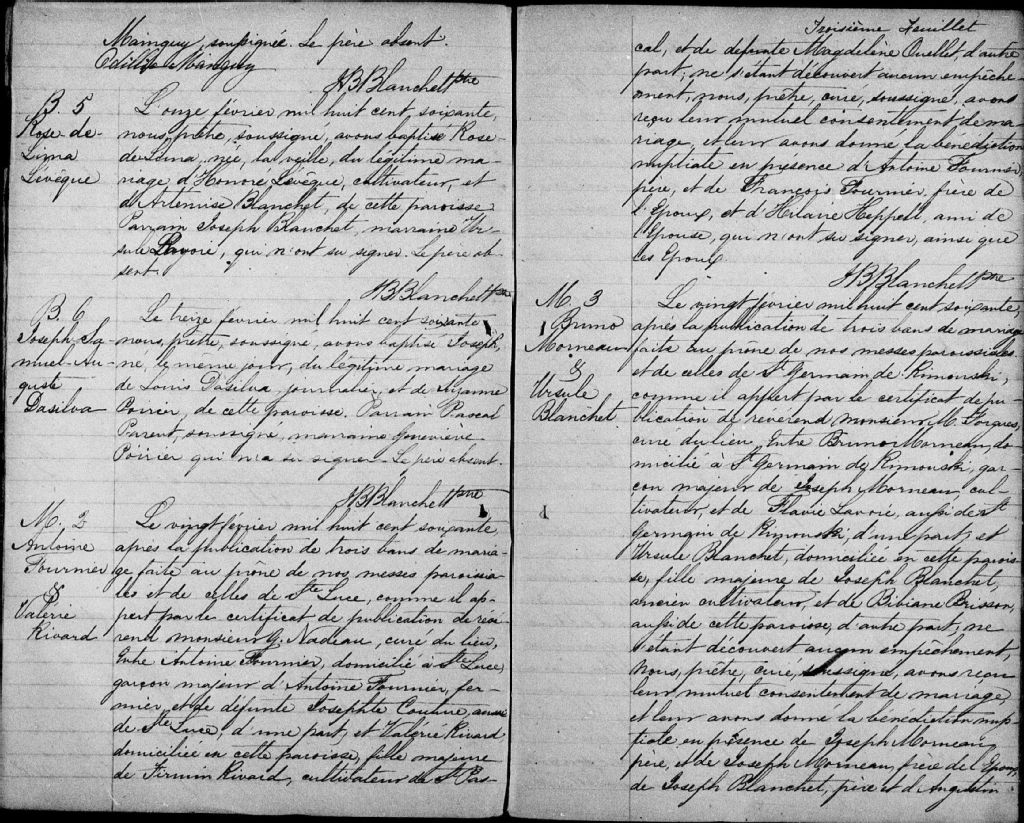 Mainguy, soussignée. Le père absent.
Odille Mainguy
JBBlanchet ptre
B. 5
Rose-de-
Lima
Lévêque
L'onze février mil huit cent, soixante,
nous, prêtre, soussigné, avons baptisé Rose-
de-Lima, née, la veille, du légitime ma-
riage d'Honoré Lévêque, cultivateur, et
d'Artemise Blanchet, de cette paroisse
Parrain Joseph Blanchet, marraine Ur-
sule Lavoie, qui n'ont su signer. Le père ab-
sent.
JBBlanchet ptre
B. 6
Joseph-Sa-
muel-Au-
guste
Dasilva
Le treize février mil huit cent soixante
nous, prêtre, soussigné, avons baptisé Joseph,
né, le même jour, du légitime mariage
de Louis Dasilva, journalier, et de Suzanne
Poirier, de cette paroisse. Parrain Pascal
Parent, soussigné, marraine Geneviève
Poirier qui n'a su signer. Le père absent.
JBBlanchet ptre
M. 2
Antoine
Fournier
&
Valérie
Rivard
Le vingt février mil huit cent soixante,
après la publication de trois bans de maria-
ge faite au prône de nos messes paroissia-
les et de celles de Ste Luce, comme il ap-
pert par le certificat de publication de révé-
rend monsieur G. Nadeau, curé du lieu,
Entre Antoine Fournier, domicilié à Ste Luce,
garçon majeur d'Antoine Fournier, fer-
mier, et de défunte Josephte Couture, aussi
de Ste Luce, d'une part, et Valérie Rivard
domiciliée en cette paroisse, fille majeure
de Firmin Rivard, cultivateur de St Pas-
Troisième Feuillet
cal, et de defunte Magdeleine Ouellet, d'autre
part; ne s'étant découvert aucun empêche-
ment, nous, prêtre, curé, soussigné, avons
reçu leur mutuel consentement de ma-
riage, et leur avons donné la bénédiction
nuptiale en présence d'Antoine Fournier,
père, et de François Fournier, frère de
l'Epoux, et d'Hilaire Heppell, ami de
l'Epouse, qui n'ont su signer, ainsi que
les Epoux
JBBlanchet ptre
M. 3
Bruno
Morneau
&
Ursule
Blanchet
Le vingt février mil huit cent soixante,
après la publication de trois bans de mariage
faite au prône de nos messes paroissiales
et de celles de St Germain de Rimouski,
comme il appert par le certificat de pu-
blication de révérend monsieur M. Forgues,
curé du lieu, Entre Bruno Morneau, do-
micilié à St Germain de Rimouski, gar-
çon majeur de Joseph Morneau, cul-
tivateur, et de Flavie Lavoie, aussi de St
Germain de Rimouski, d'une part, et
Ursule Blanchet, domiciliée en cette parois-
se, fille majeure de Joseph Blanchet,
ancien cultivateur, et de Bibiane Brisson,
aussi de cette paroisse, d'autre part; ne
s'étant découvert aucun empêchement,
nous, prêtre, curé, soussigné, avons reçu
leur mutuel consentement de mariage,
et leur avons donné la bénédiction nup-
tiale en présence de Joseph Morneau,
père, et de Joseph Morneau, frère de l'Epoux,
de Joseph Blanchet, père et d'Augustin